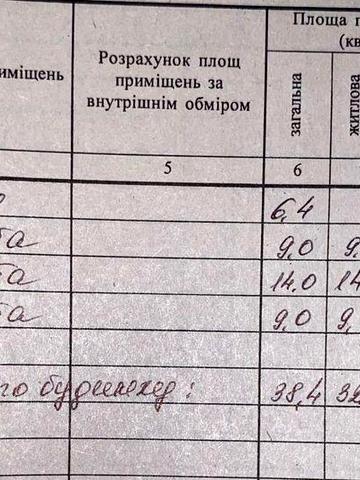 Площа п
(кв
міщень
Розрахунок площ
приміщень за
внутрішнім обміром
загальна
житлова
5
6
6,4
та 9,0 9,
та 14,0 14
та 9,0 9,
го будинкед: 38,4 32